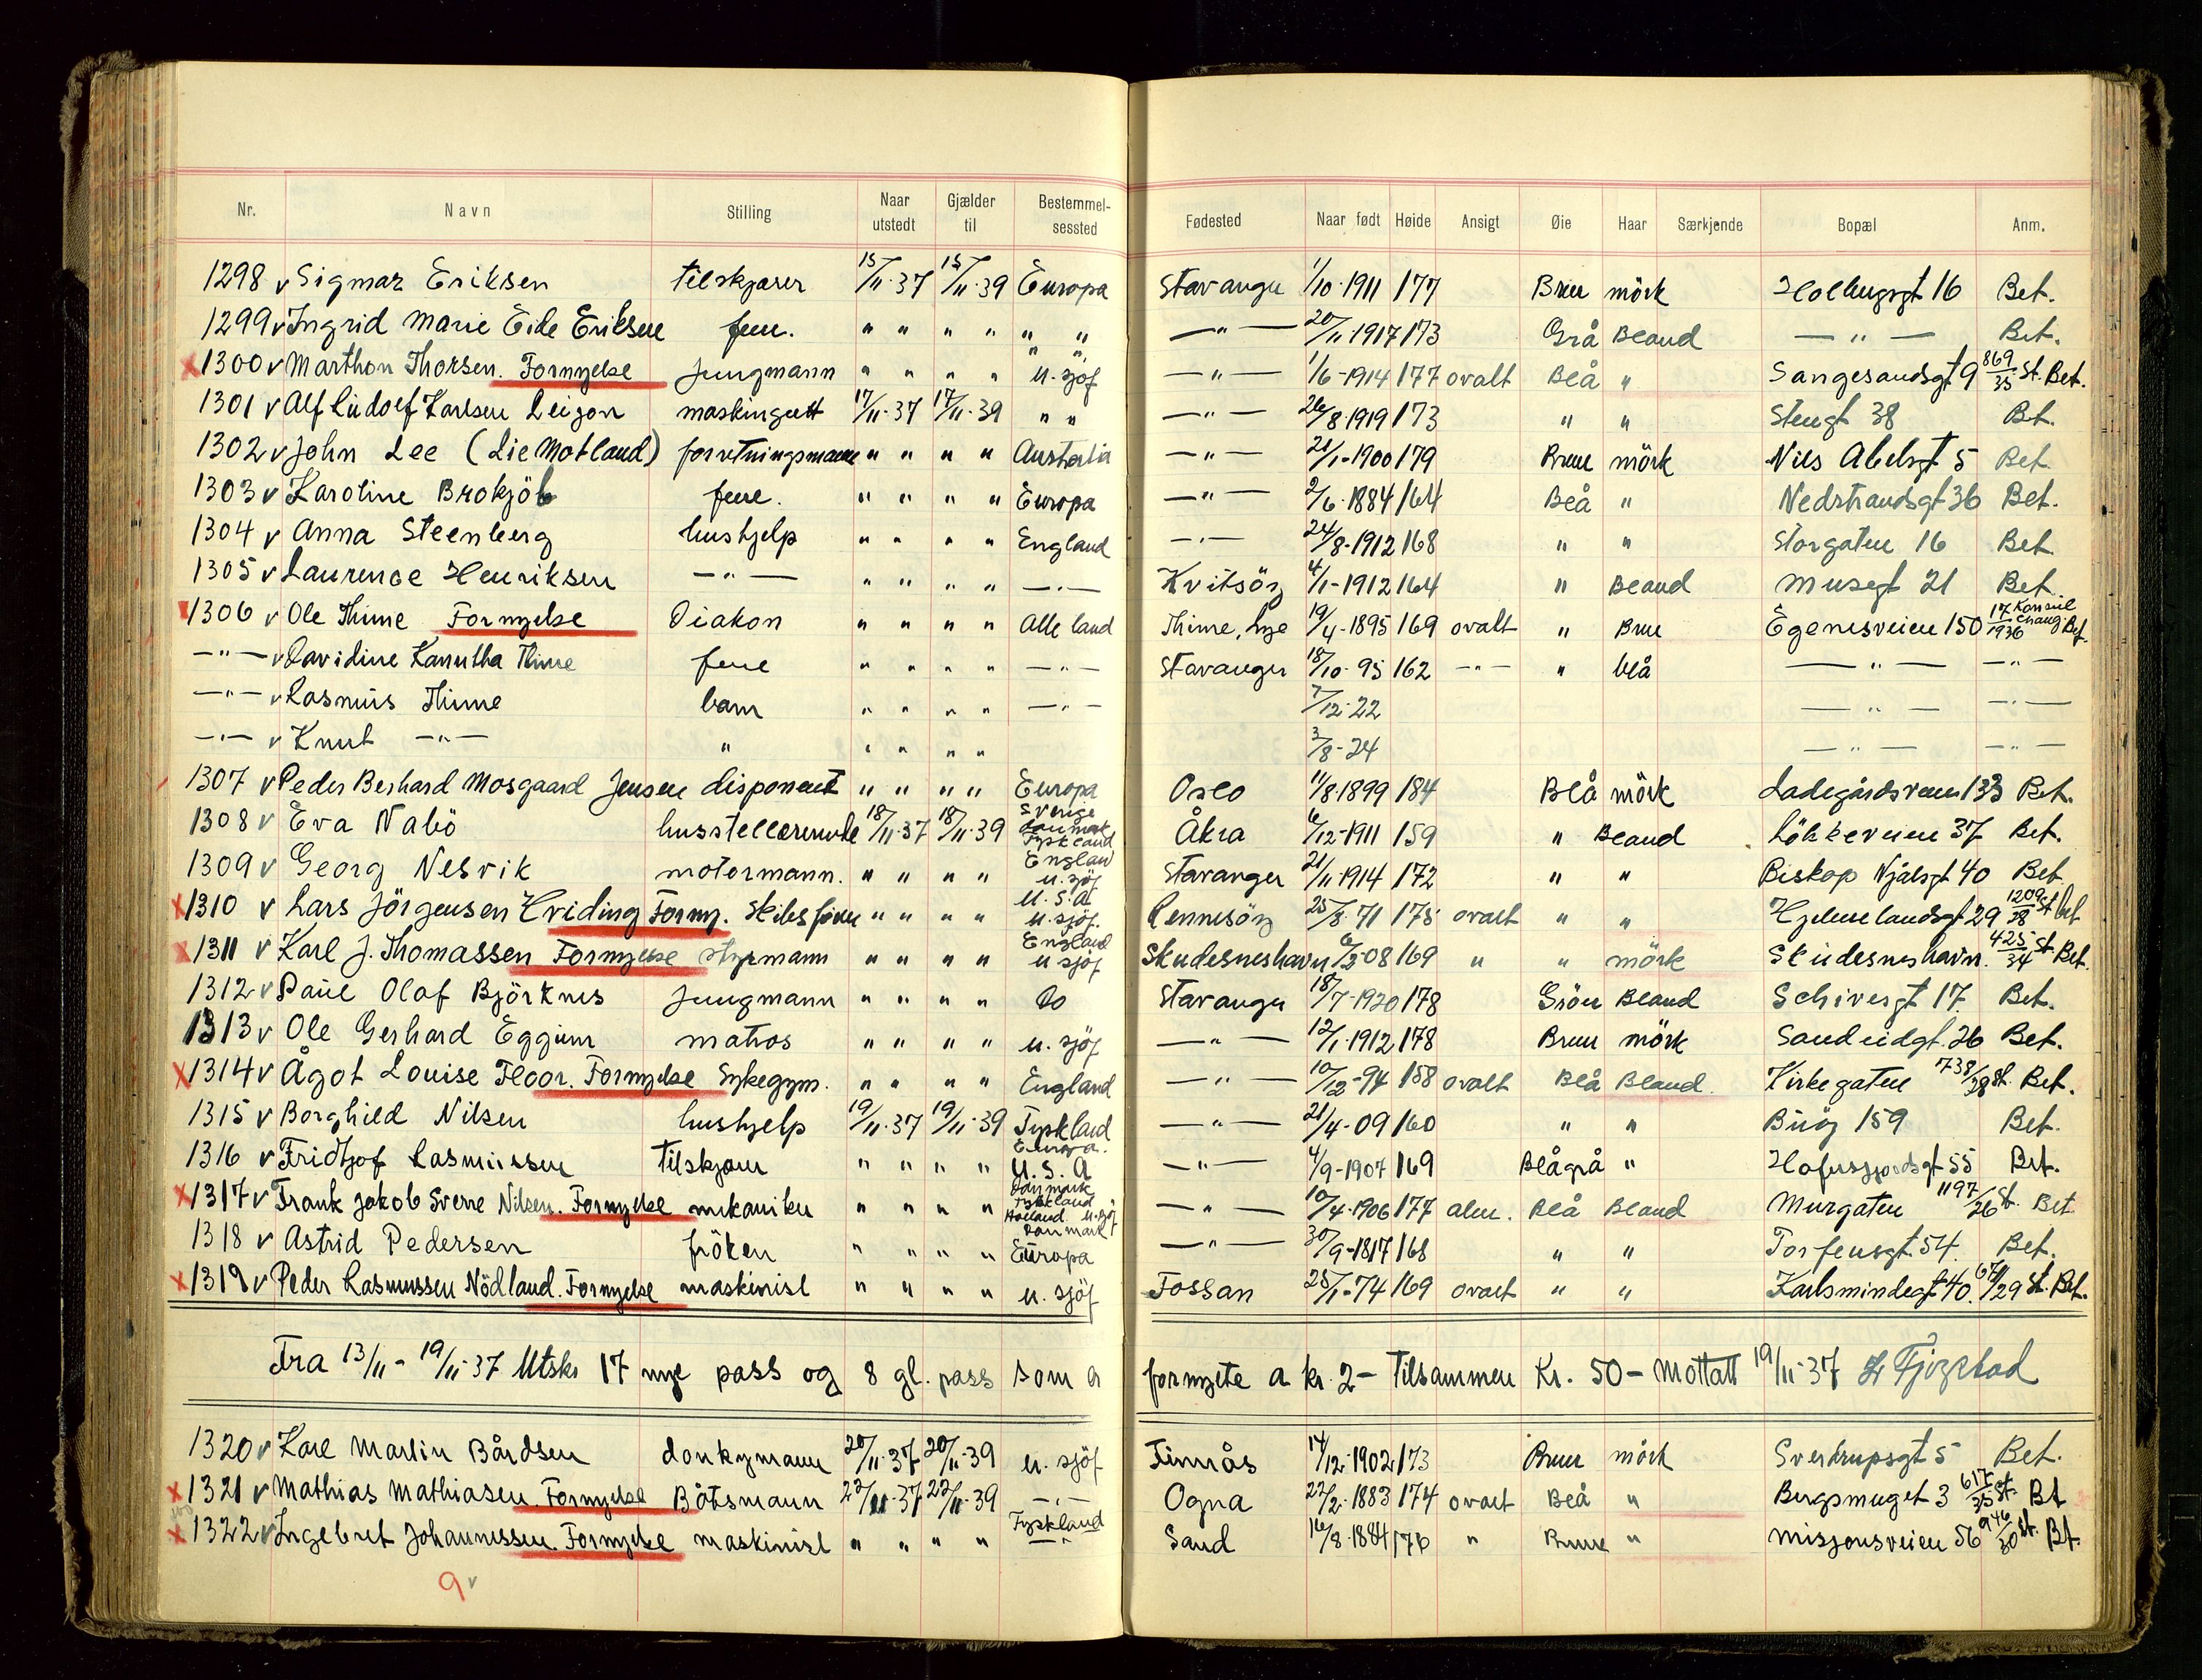 Nr. Navn Stilling Naar utstedt Gjælder til Bestemmelsessted Fødested Naar født Høide Ansigt Øie Haar Særkjende Bopæl Anm.
1298 v Sigmar Eriksen tilskjærer 15/11-37 15/11-39 Europa Stavanger 1/10-1911 177 Brun mörk Holbergsgt 16 Bet.
1299 v Ingrid Marie Eide Eriksen frue. " " " " " " —"— 20/11-1917 173 Grå Bland —"— Bet.
x 1300 v Marthon Thorsen. Fornyelse Jungmann " " " " " " u. sjöf —"— 1/6-1914 177 ovalt Blå " Sangesandsgt 9 869/35 St. Bet.
1301 v Alf Ludolf Karlsen Leigon maskingutt 17/11-37 17/11-39 " " —"— 26/8-1919 173 " " Stengt 38 Bet.
1302 v John Lee (Lie Motland) forretningsmann " " " " Australia —"— 21/1-1900 179 Brun mörk Nils Abelsgt 5 Bet
1303 v Karoline Brokjöb frue. " " " " Europa —"— 2/6-1884 164 Blå " Nedstrandsgt 36 Bet.
1304 v Anna Steenberg hushjelp " " " " England —"— 24/8-1912 168 " " Storgaten 16 Bet
1305 v Laurence Henriksen —"— " " " " —"— Kvitsöy 4/1-1912 164 " Bland Musegt 21 Bet
x 1306 v Ole Thime Fornyelse Diakon " " " " Alle land Thime, Lye 19/4-1895 169 ovalt " Brun Egenesveien 150 17/1936 Konsul Chang Bet.
—"— v Davidine Kanutha Thime frue " " " " —"— Stavanger 18/10-95 162 —"— " blå —"— —"—
—"— v Rasmus Thime barn " " " " —"— 7/12-22 —"— —"—
—"— v Knut —"— " " " " " 3/8-24 —"— —"—
1307 v Peder Berhard Mosgaard Jensen disponent " " " " Europa Oslo 11/8-1899 184 Blå mörk Ladegårdsveien 133 Bet.
1308 v Eva Nabö husstellærerinde 18/11-37 18/11-39 Sverige Danmark Tyskland Åkra 6/12-1911 159 " Bland Lökkeveien 37 Bet.
1309 v Georg Nesvik motormann. " " " " England u. sjöf Stavanger 21/11-1914 172 " " Biskop Njålsgt 40 Bet
x 1310 v Lars Jörgensen Hviding Forny. Skibsförer " " " " U.S.A u. sjöf. Rennesöy 25/8-71 175 ovalt " " Hjelmelandsgt 29 1209/28 St Bet
x 1311 v Karl J. Thomassen Fornyelse styrmann " " " " England u sjöf Skudesneshavn 6/2-08 169 " " mörk Skudesneshavn. 425/34 St. Bet.
1312 v Paul Olaf Björknes Jungmann " " " " Do Stavanger 18/7-1920 178 Grön Bland Schivesgt 17. Bet.
1313 v Ole Gerhard Eggum matros " " " " u. sjöf —"— 12/1-1912 178 Brun mörk Sandeidgt. 26 Bet.
x 1314 v Ågot Louise Floor. Fornyelse Sykegym. " " " " England —"— 10/12-94 158 ovalt Blå Bland. Kirkegaten 738/28 St. Bet.
1315 v Borghild Nilsen hushjelp 19/11-37 19/11-39 Tyskland —"— 21/4-09 160 " " Buöy 159 Bet.
1316 v Fridtjof Rasmussen Tilskjærer " " " " Europa. U.S.A —"— 4/9-1907 169 Blågrå " Hafrsfjordsgt 55 Bet.
x 1317 v Frank Jakob Sverre Nilsen. Fornyelse mekaniker " " " " Danmark Tyskland Holland u. sjöf —"— 10/4-1906 177 alm. Blå Bland Murgaten 1197/26 St. Bet
1318 v Astrid Pedersen fröken " " " " Danmark Europa —"— 30/9-1817 168 " " Torfeusgt. 54. Bet.
x 1319 v Peder Rasmussen Nödland. Fornyelse maskinist " " " " u. sjöf Fossan 25/1-74 169 ovalt " " Karlsmindegt 40. 671/29 St. Bet.
Fra 13/11 - 19/11-37 Utsks 17 nye pass og 8 gl. pass som a fornyete a kr. 2— Tilsammen Kr. 50— Mottatt 19/11-37 Fjogstad
1320 v Karl Martin Bårdsen donkymann 20/11-37 20/11-39 u. sjöf Finnås 14/12-1902 173 Brun mörk Sverdrupsgt 5 Bet.
x 1321 v Mathias Mathiasen. Fornyelse Båtsmann 22/11-37 22/11-39 —"— Ogna 22/2-1883 174 ovalt Blå " Bergsmuget 3 617/35 St. Bt
x 1322 v Ingebret Johannessen. Fornyelse maskinist " " " " Tyskland —"— Sand 16/8-1884 176 " Brune " Misjonsveien 56 946/30 St. Bt.
9 v